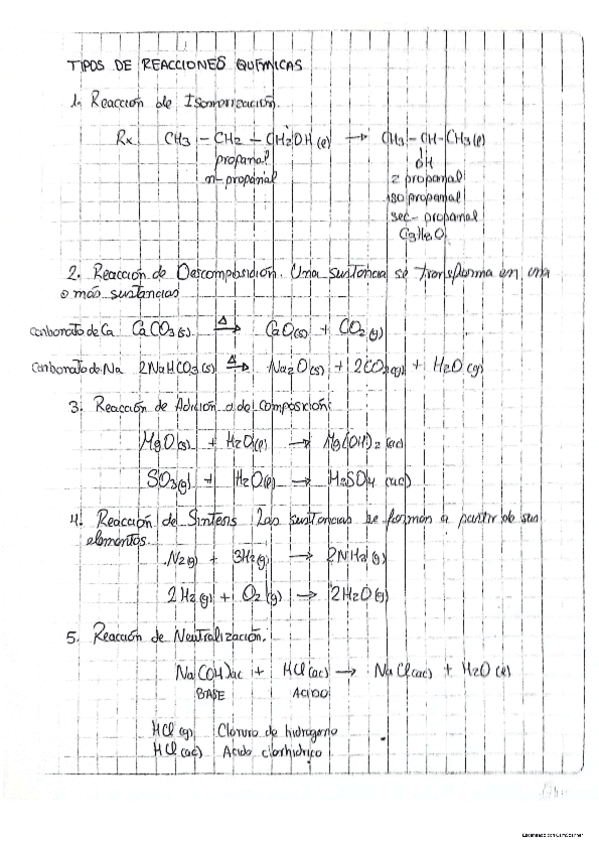 TIPOS DE REACCIONES QUÍMICAS
1. Reacción de Isomerización.
Rx CH3 – CH2 – CH2OH (l) → CH3 – CH – CH3 (l)
propanal OH
n-propanal 2 propanal
iso propanal
sec- propanal
C3H8O
2. Reacción de Descomposición. Una sustancia se transforma en una
o más sustancias
carbonato de Ca CaCO3(s) Δ→ CaO(s) + CO2(g)
carbonato de Na 2NaHCO3(s) Δ→ Na2O(s) + 2CO2(g) + H2O(g)
3. Reacción de Adición o de Composición:
MgO(s) + H2O(l) → Mg(OH)2 (ac)
SO3(g) + H2O(l) → H2SO4 (ac)
4. Reacción de Síntesis Las sustancias se forman a partir de sus
elementos.
N2(g) + 3H2(g) → 2NH3(g)
2H2(g) + O2(g) → 2H2O(g)
5. Reacción de Neutralización.
Na(OH)ac + HCl(ac) → NaCl(ac) + H2O(l)
BASE ACIDO
HCl(g) Cloruro de hidrógeno
HCl(ac) Acido clorhídrico